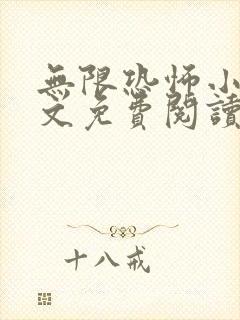 無限恐怖小
文免費閱讀
十八戒